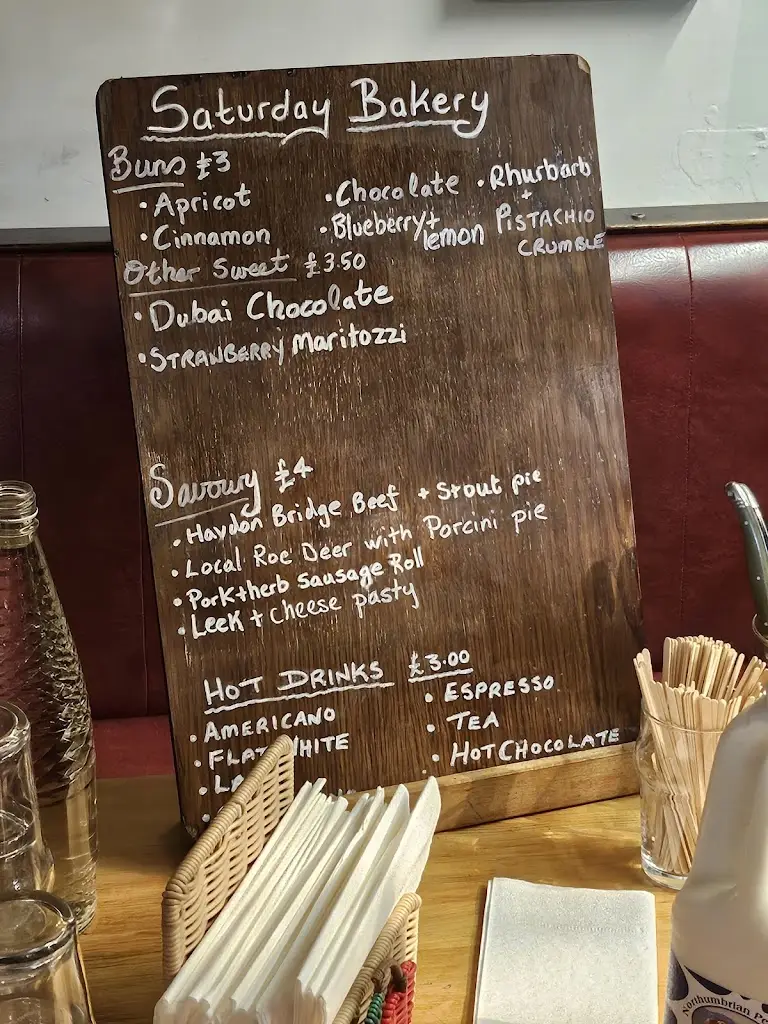 Saturday Bakery
Buns £3
• Apricot
• Cinnamon
• Chocolate
• Blueberry + lemon
• Rhurbarb
+
PISTACHIO
CRUMBLE
Other Sweet £3.50
• Dubai Chocolate
• STRAWBERRY Maritozzi
Savoury £4
• Haydon Bridge Beef + Stout pie
• Local Roe Deer with Porcini pie
• Pork+herb Sausage Roll
• Leek + cheese pasty
HOT DRINKS £3.00
• AMERICANO
• FLAT WHITE
• ESPRESSO
• TEA
• HOT CHOCOLATE
Northumbrian